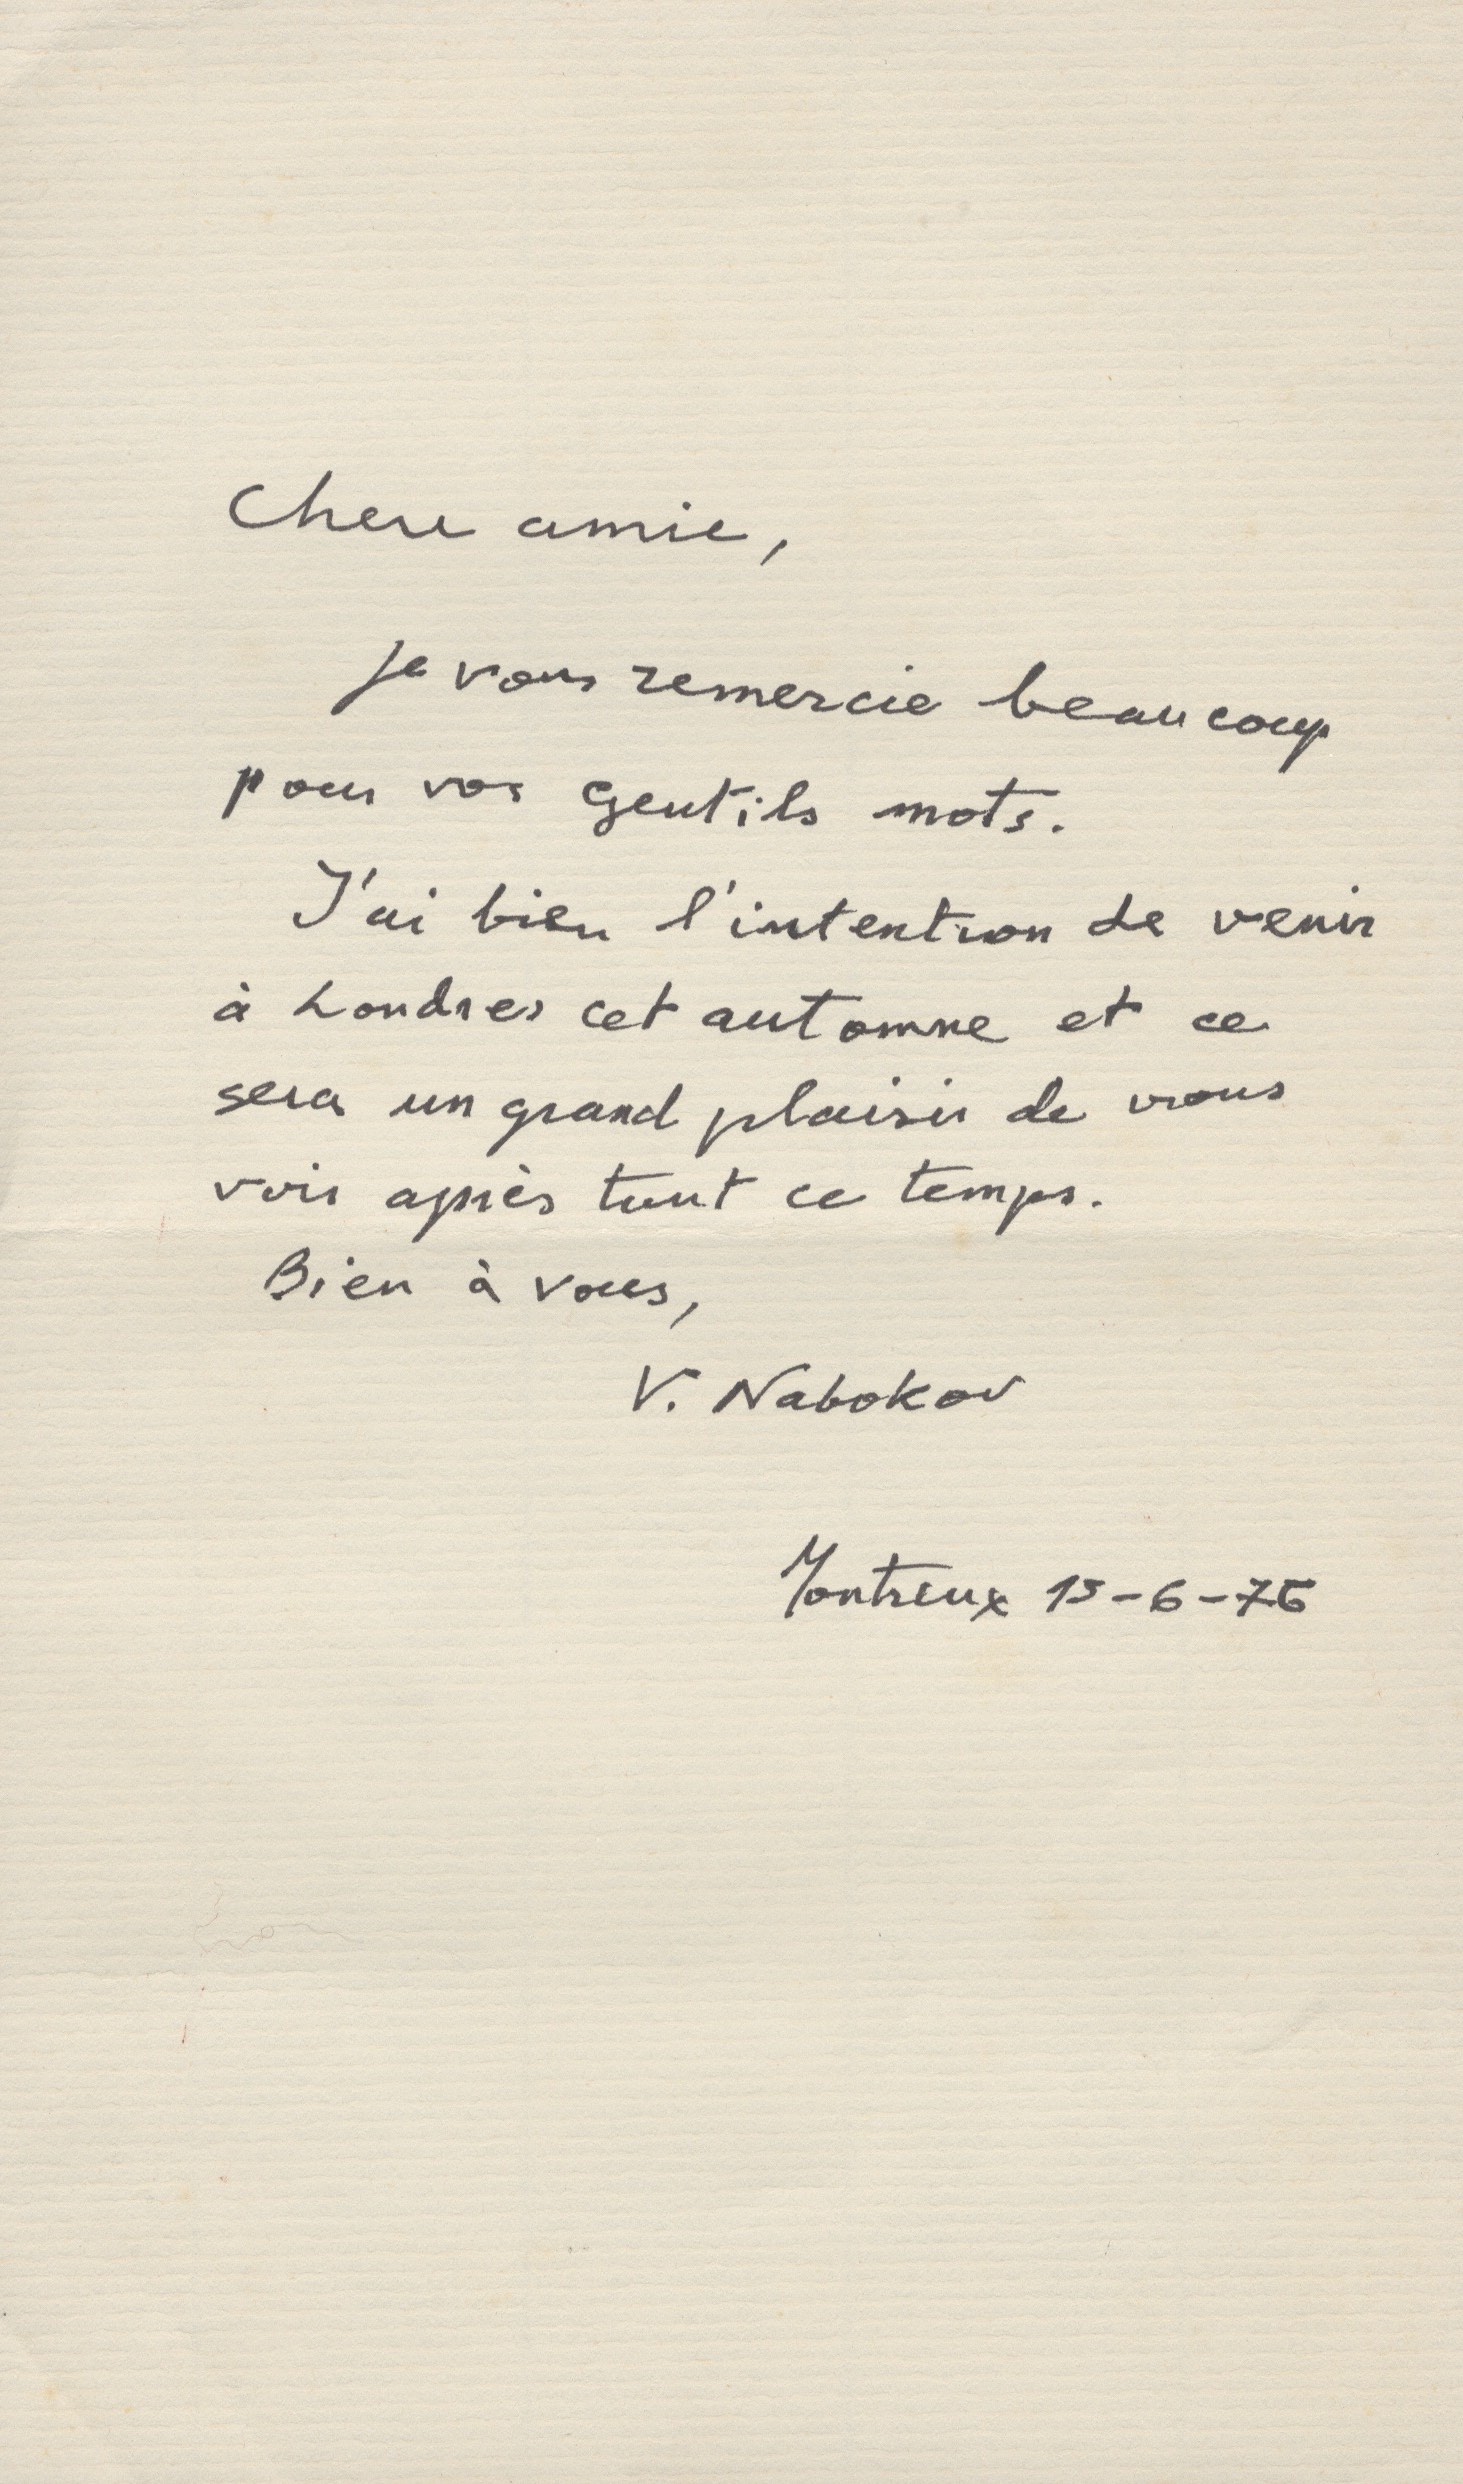 Chere amie,
je vous remercie beaucoup
pour vos gentils mots.
J'ai bien l'intention de venir
à Londres cet automne et ce
sera un grand plaisir de vous
voir après tout ce temps.
Bien à vous,
V. Nabokov
Montreux 15-6-76